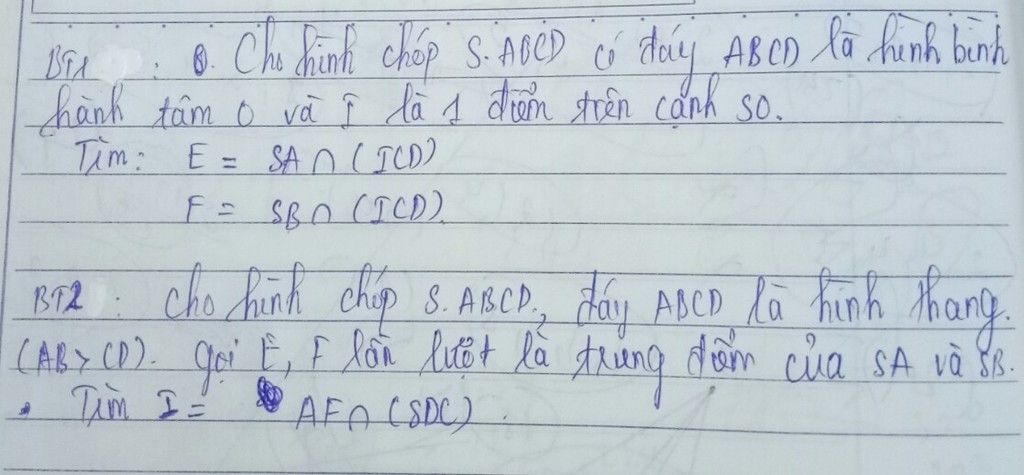 BT1 : Cho hình chóp S.ABCD có đáy ABCD là hình bình
hành tâm O và I là 1 điểm trên cạnh SO.
Tìm: E = SA ∩ (ICD)
F = SB ∩ (ICD)
BT2 : Cho hình chóp S.ABCD, đáy ABCD là hình thang.
(AB > CD). Gọi E, F lần lượt là trung điểm của SA và SB.
. Tìm I = AF ∩ (SDC).